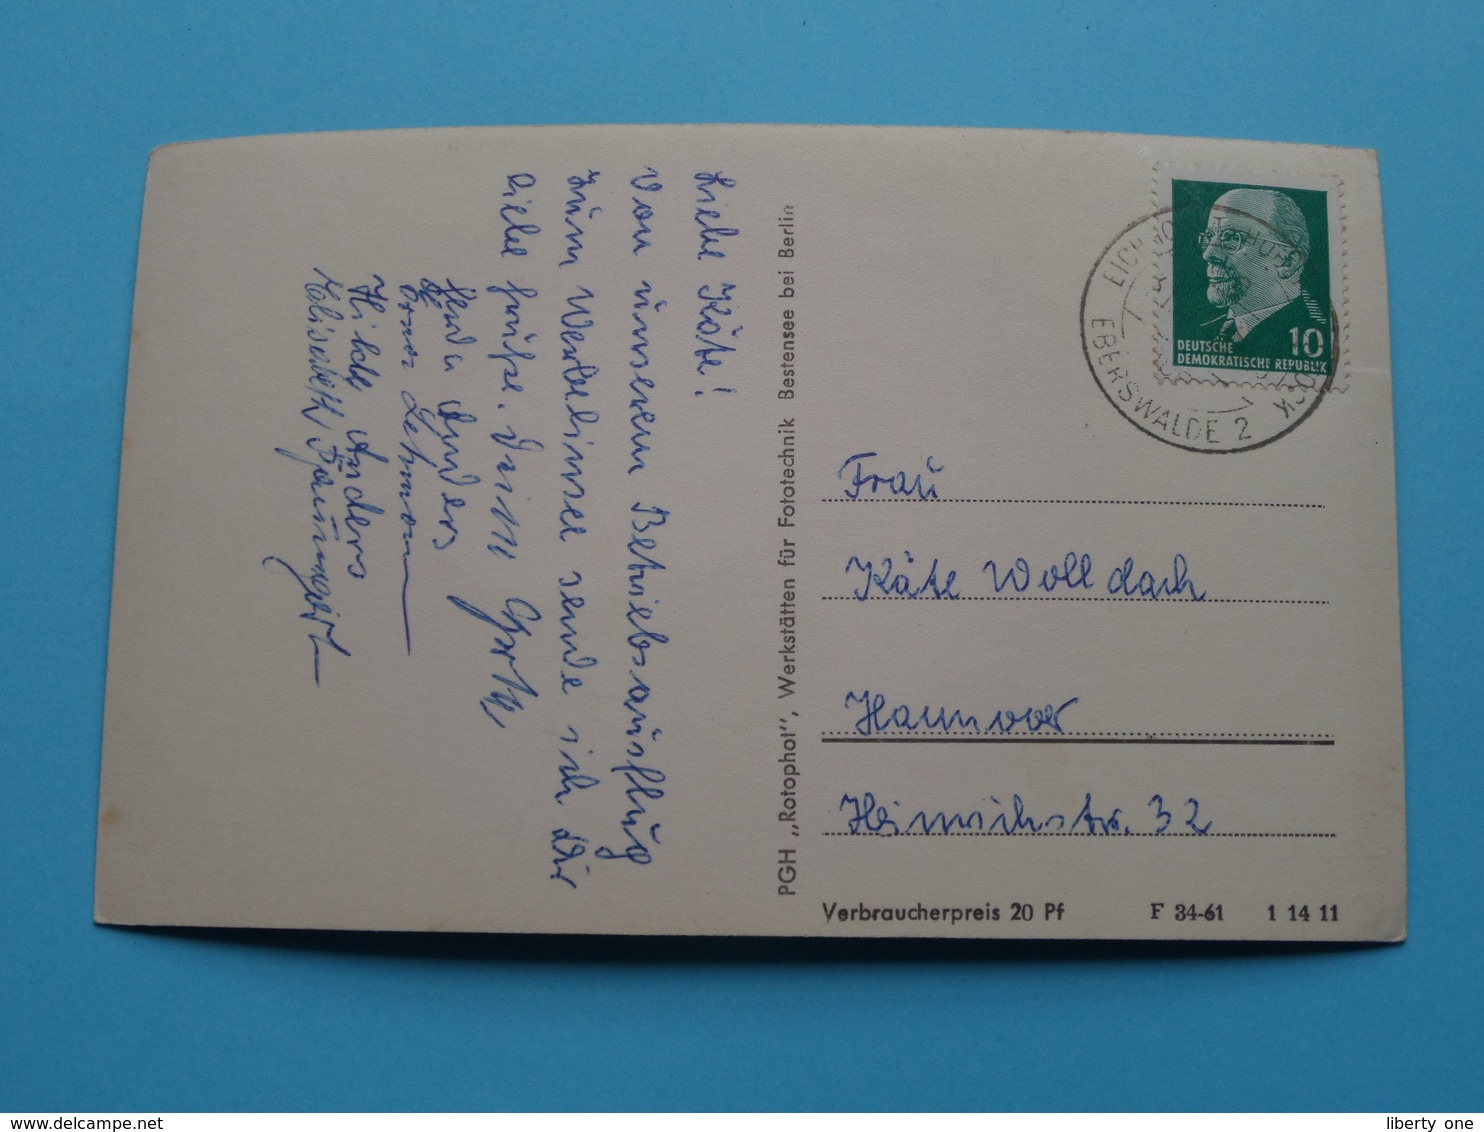 Liebe Käte!
Von unserem Betriebsausflug
zum Werbelinsee sende ich Dir
liebe Grüße. Deine
Anders
Lehmann
Hilde Anders
Elisabeth Baumgart
PGH „Rotophot", Werkstätten für Fototechnik Bestensee bei Berlin
EBERSWALDE 2
10
DEUTSCHE
DEMOKRATISCHE REPUBLIK
Frau
Käte Wolldach
Hannover
Heinrichstr. 32
Verbraucherpreis 20 Pf F 34-61 1 14 11
liberty one